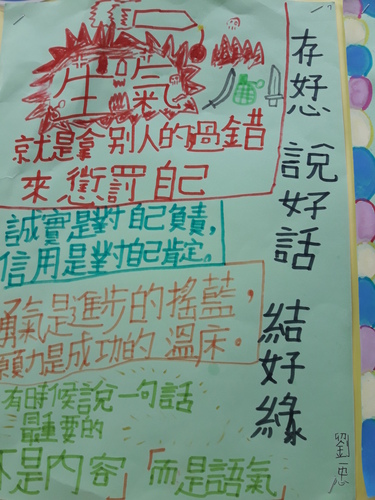 存好心 說好話 結好緣
生氣
就是拿別人的過錯
來懲罰自己
誠實是對自己負責,
信用是對自己肯定。
勇氣是進步的搖籃,
願力是成功的溫床。
有時候說一句話
最重要的
不是內容」「而是語氣」
劉一